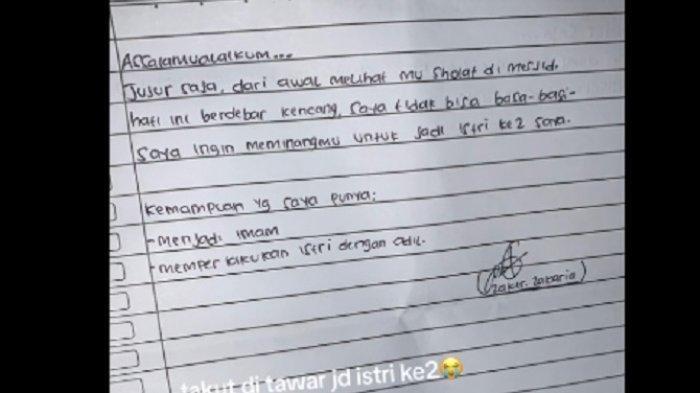 Assalamualaikum...
Jujur saja, dari awal melihat mu sholat di mesjid.
hati ini berdebar kencang, saya tidak bisa basa-basi-
saya ingin meminangmu untuk jadi istri ke2 saya.
kemampuan yg saya punya:
-menjadi imam
-memperlakukan istri dengan adil.
zakaria)
takut di tawar jd istri ke2😭